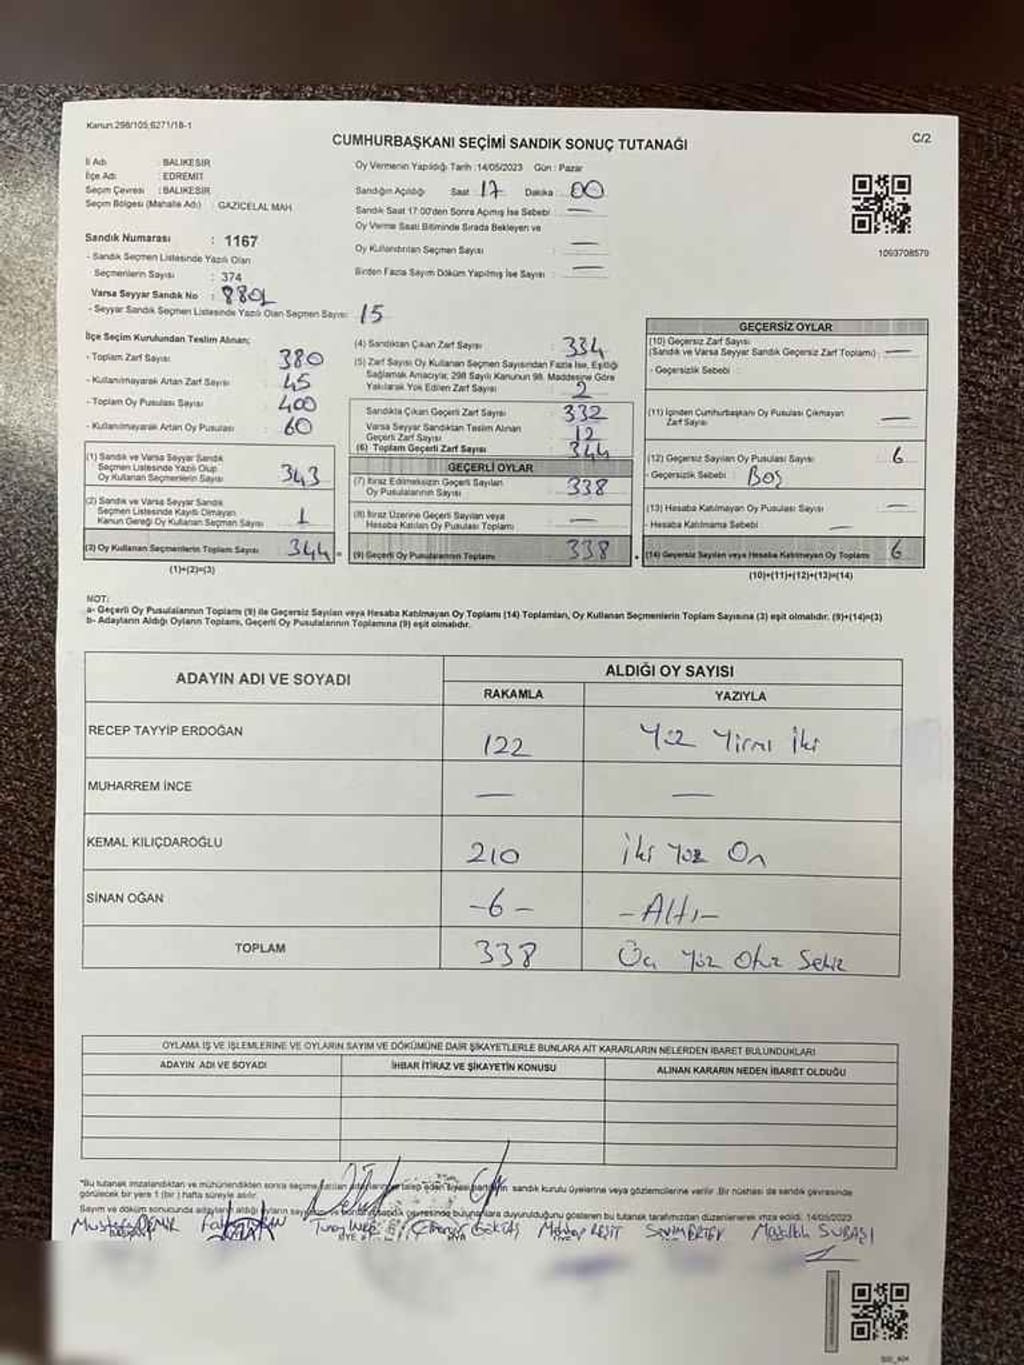 Kanun:298/105;6271/18-1
C/2
CUMHURBAŞKANI SEÇİMİ SANDIK SONUÇ TUTANAĞI
İl Adı : BALIKESİR
İlçe Adı : EDREMİT
Seçim Çevresi : BALIKESİR
Seçim Bölgesi (Mahalle Adı) : GAZİCELAL MAH
Sandık Numarası : 1167
- Sandık Seçmen Listesinde Yazılı Olan
Seçmenlerin Sayısı : 374
Varsa Seyyar Sandık No :
- Seyyar Sandık Seçmen Listesinde Yazılı Olan Seçmen Sayısı: 15
Oy Vermenin Yapıldığı Tarih :14/05/2023 Gün : Pazar
Sandığın Açıldığı Saat : 17 Dakika : 00
Sandık Saat 17:00'den Sonra Açılmış İse Sebebi : —
Oy Verme Saati Bitiminde Sırada Bekleyen ve
Oy Kullandırılan Seçmen Sayısı : —
Birden Fazla Sayım Döküm Yapılmış İse Sayısı : —
1093708579
İlçe Seçim Kurulundan Teslim Alınan;
- Toplam Zarf Sayısı : 380
- Kullanılmayarak Artan Zarf Sayısı : 45
- Toplam Oy Pusulası Sayısı : 400
- Kullanılmayarak Artan Oy Pusulası : 60
(1) Sandık ve Varsa Seyyar Sandık
Seçmen Listesinde Yazılı Olup
Oy Kullanan Seçmenlerin Sayısı : 343
(2) Sandık ve Varsa Seyyar Sandık
Seçmen Listesinde Kayıtlı Olmayan
Kanun Gereği Oy Kullanan Seçmen Sayısı : 1
(3) Oy Kullanan Seçmenlerin Toplam Sayısı : 344
(1)+(2)=(3)
(4) Sandıktan Çıkan Zarf Sayısı : 334
(5) Zarf Sayısı Oy Kullanan Seçmen Sayısından Fazla İse, Eşitliği
Sağlamak Amacıyla; 298 Sayılı Kanunun 98. Maddesine Göre
Yakılarak Yok Edilen Zarf Sayısı : 2
Sandıkta Çıkan Geçerli Zarf Sayısı : 332
Varsa Seyyar Sandıktan Teslim Alınan
Geçerli Zarf Sayısı : 12
(6) Toplam Geçerli Zarf Sayısı : 344
GEÇERLİ OYLAR
(7) İtiraz Edilmeksizin Geçerli Sayılan
Oy Pusulalarının Sayısı : 338
(8) İtiraz Üzerine Geçerli Sayılan veya
Hesaba Katılan Oy Pusulası Toplamı : —
(9) Geçerli Oy Pusulalarının Toplamı : 338
GEÇERSİZ OYLAR
(10) Geçersiz Zarf Sayısı
(Sandık ve Varsa Seyyar Sandık Geçersiz Zarf Toplamı) : —
- Geçersizlik Sebebi :
(11) İçinden Cumhurbaşkanı Oy Pusulası Çıkmayan
Zarf Sayısı : —
(12) Geçersiz Sayılan Oy Pusulası Sayısı : 6
- Geçersizlik Sebebi : Boş
(13) Hesaba Katılmayan Oy Pusulası Sayısı : —
- Hesaba Katılmama Sebebi : —
(14) Geçersiz Sayılan veya Hesaba Katılmayan Oy Toplamı : 6
(10)+(11)+(12)+(13)=(14)
NOT:
a- Geçerli Oy Pusulalarının Toplamı (9) ile Geçersiz Sayılan veya Hesaba Katılmayan Oy Toplamı (14) Toplamları, Oy Kullanan Seçmenlerin Toplam Sayısına (3) eşit olmalıdır. (9)+(14)=(3)
b- Adayların Aldığı Oyların Toplamı, Geçerli Oy Pusulalarının Toplamına (9) eşit olmalıdır.
ADAYIN ADI VE SOYADI ALDIĞI OY SAYISI
RAKAMLA YAZIYLA
RECEP TAYYİP ERDOĞAN 122 Yüz Yirmi İki
MUHARREM İNCE — —
KEMAL KILIÇDAROĞLU 210 İki Yüz On
SİNAN OĞAN -6- -Altı-
TOPLAM 338 Üç Yüz Otuz Sekiz
OYLAMA İŞ VE İŞLEMLERİNE VE OYLARIN SAYIM VE DÖKÜMÜNE DAİR ŞİKAYETLERLE BUNLARA AİT KARARLARIN NELERDEN İBARET BULUNDUKLARI
ADAYIN ADI VE SOYADI İHBAR İTİRAZ VE ŞİKAYETİN KONUSU ALINAN KARARIN NEDEN İBARET OLDUĞU
*Bu tutanak imzalandıktan ve mühürlendikten sonra seçime talep eden sandık kurulu üyelerine veya gözlemcilerine verilir. Bir nüshası da sandık çevresinde
görülecek bir yere 1 (bir) hafta süreyle asılır.
Sayım ve döküm sonucunda adayların aldığı oyların sandık çevresinde bulunanlara duyurulduğunu gösteren bu tutanak tarafımızdan düzenlenerek imza edildi. 14/05/2023
SUBAŞI